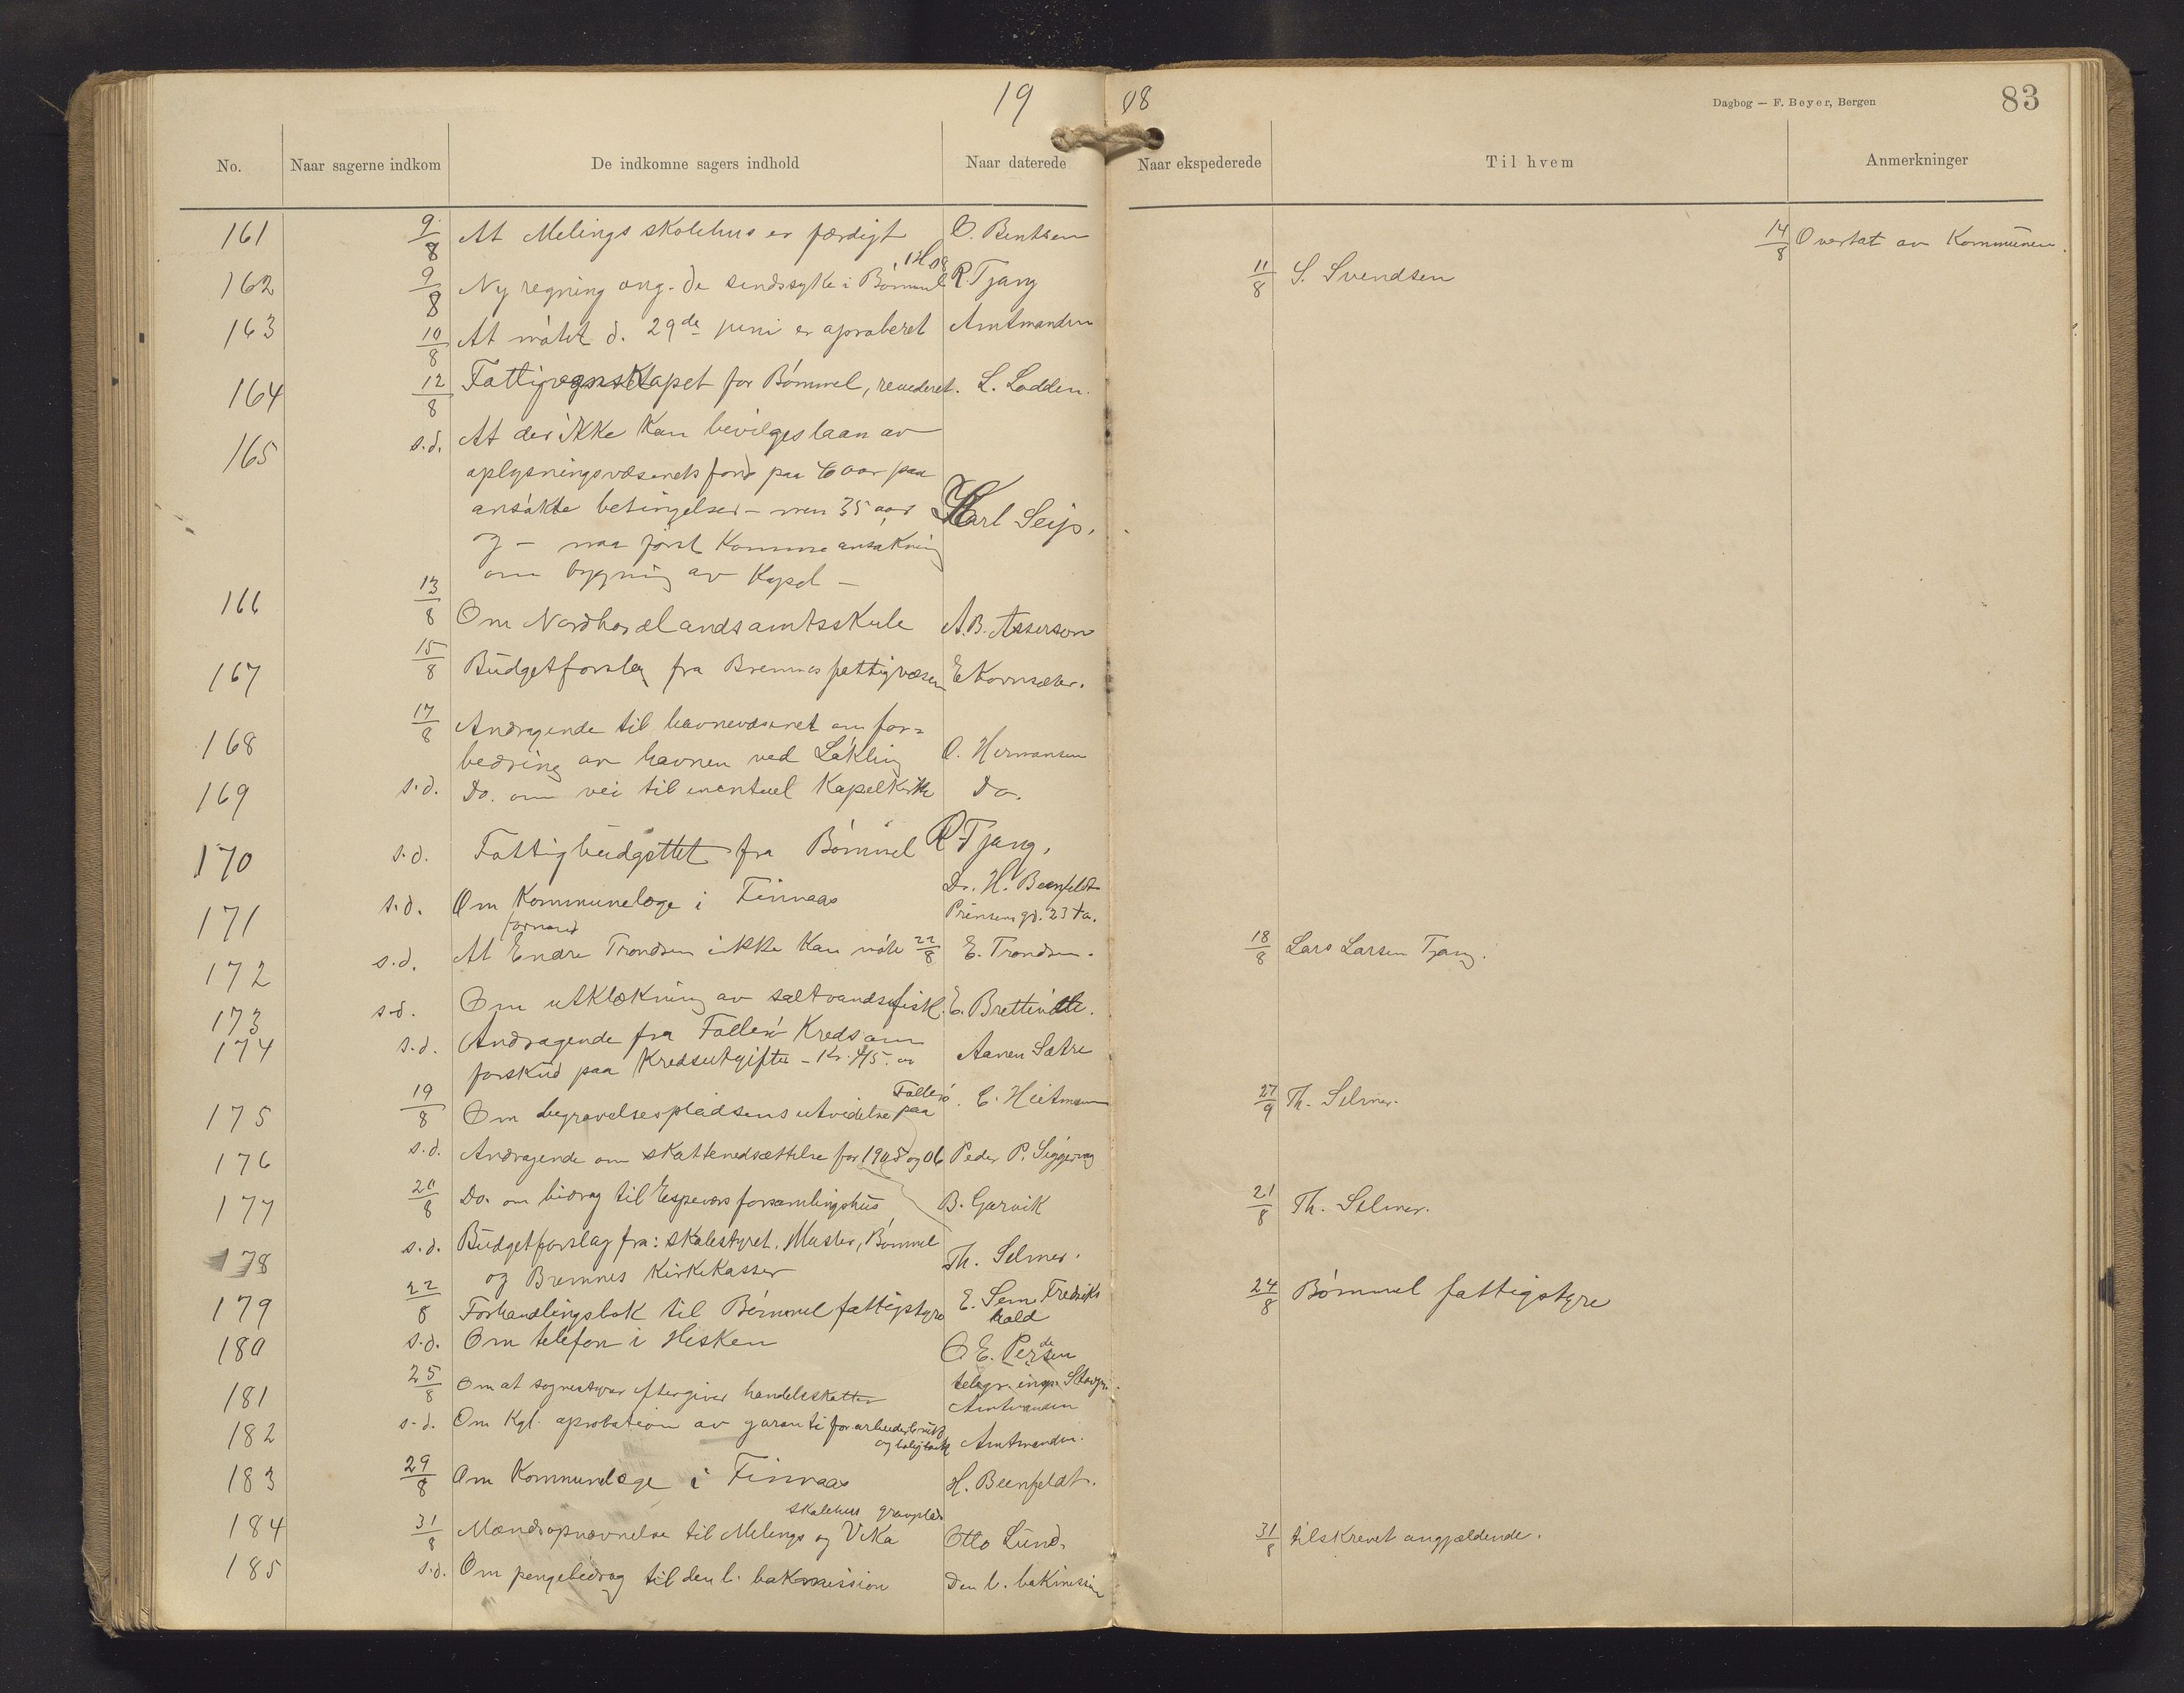 19 08
Dagbog — F. Beyer, Bergen
83
No. Naar sagerne indkom De indkomne sagers indhold Naar daterede Naar ekspederede Til hvem Anmerkninger
161 9/8 At Melings skolehus er færdigt O. Bentsen 14/8 Overtat av Kommunen.
162 9/8 Ny regning ang. de sindssyke i Bømmel R. Tjang 11/8 S. Svendsen
163 10/8 At møtet d. 29de juni er aproberet Amtmanden
164 12/8 Fattigregnskapet for Bømmel, revideret. L. Lodden.
165 s.d. At der ikke kan bevilges laan av
oplysningsvæsenets fond paa 60 aar paa
ansøkte betingelser – men 35 aar Karl Seip.
og – maa først komme ansøkning
om bygning av Kapel –
166 13/8 Om Nordhordlands amtsskule A.B. Asserson
167 15/8 Budgetforslag fra Bremnes fattigvæsen E Kornsæter.
168 17/8 Andragende til havnevæsenet om for=
bedring av havnen ved Løkling O. Hermansen
169 s.d. Do. om vei til eventuel Kapelkirke Do.
170 s.d. Fattigbudgettet fra Bømmel R. Tjang.
171 s.d. Om Kommunelæge i Finnaas Dr. H. Beenfeldt
Prinsens gd. 23 ta.
formand
172 s.d. At Endre Trondsen ikke kan møte 22/8 E. Trondsen. 18/8 Lars Larsen Tjang.
173 s.d. Om utklækning av saltvandsfisk. E. Brettevik.
174 s.d. Andragende fra Follesø Kreds om
forskud paa Kredsutgifter – Kr. 415.00 Aanen Sætre
Follesø
175 19/8 Om begravelsespladsens utvidelse paa C. Heitmann 27/9 Th. Selmer.
176 s.d. Andragende om skattenedsættelse for 1905 og 06 Peder P. Siggjervaag
177 20/8 Do. om bidrag til Espevær forsamlingshus B. Garvik 21/8 Th. Selmer.
178 s.d. Budgetforslag fra: skolestyret. Moster, Bømmel
og Bremnes Kirkekasser Th. Selmer.
179 22/8 Forhandlingsbok til Bømmel fattigstyre E. Sem Fredriks
hald 24/8 Bømmel fattigstyre
180 s.d. Om telefon i Hisken O. E. Pedersen
telegr. insp. Stavgr.
181 25/8 Om at sognestyrer eftergiver handelsskatter Amtmanden
182 s.d. Om Kgl. aprobation av garanti for arbeiderbruk
og boligbank Amtmanden.
183 29/8 Om Kommunelæge i Finnaas H. Beenfeldt.
skolehus gravplads
184 31/8 Mændsopnævnelse til Melings og Vika Otto Lund. 31/8 tilskrevet angjældende.
185 s.d. Om pengebidrag til den l. bakmission Den l. bakmission